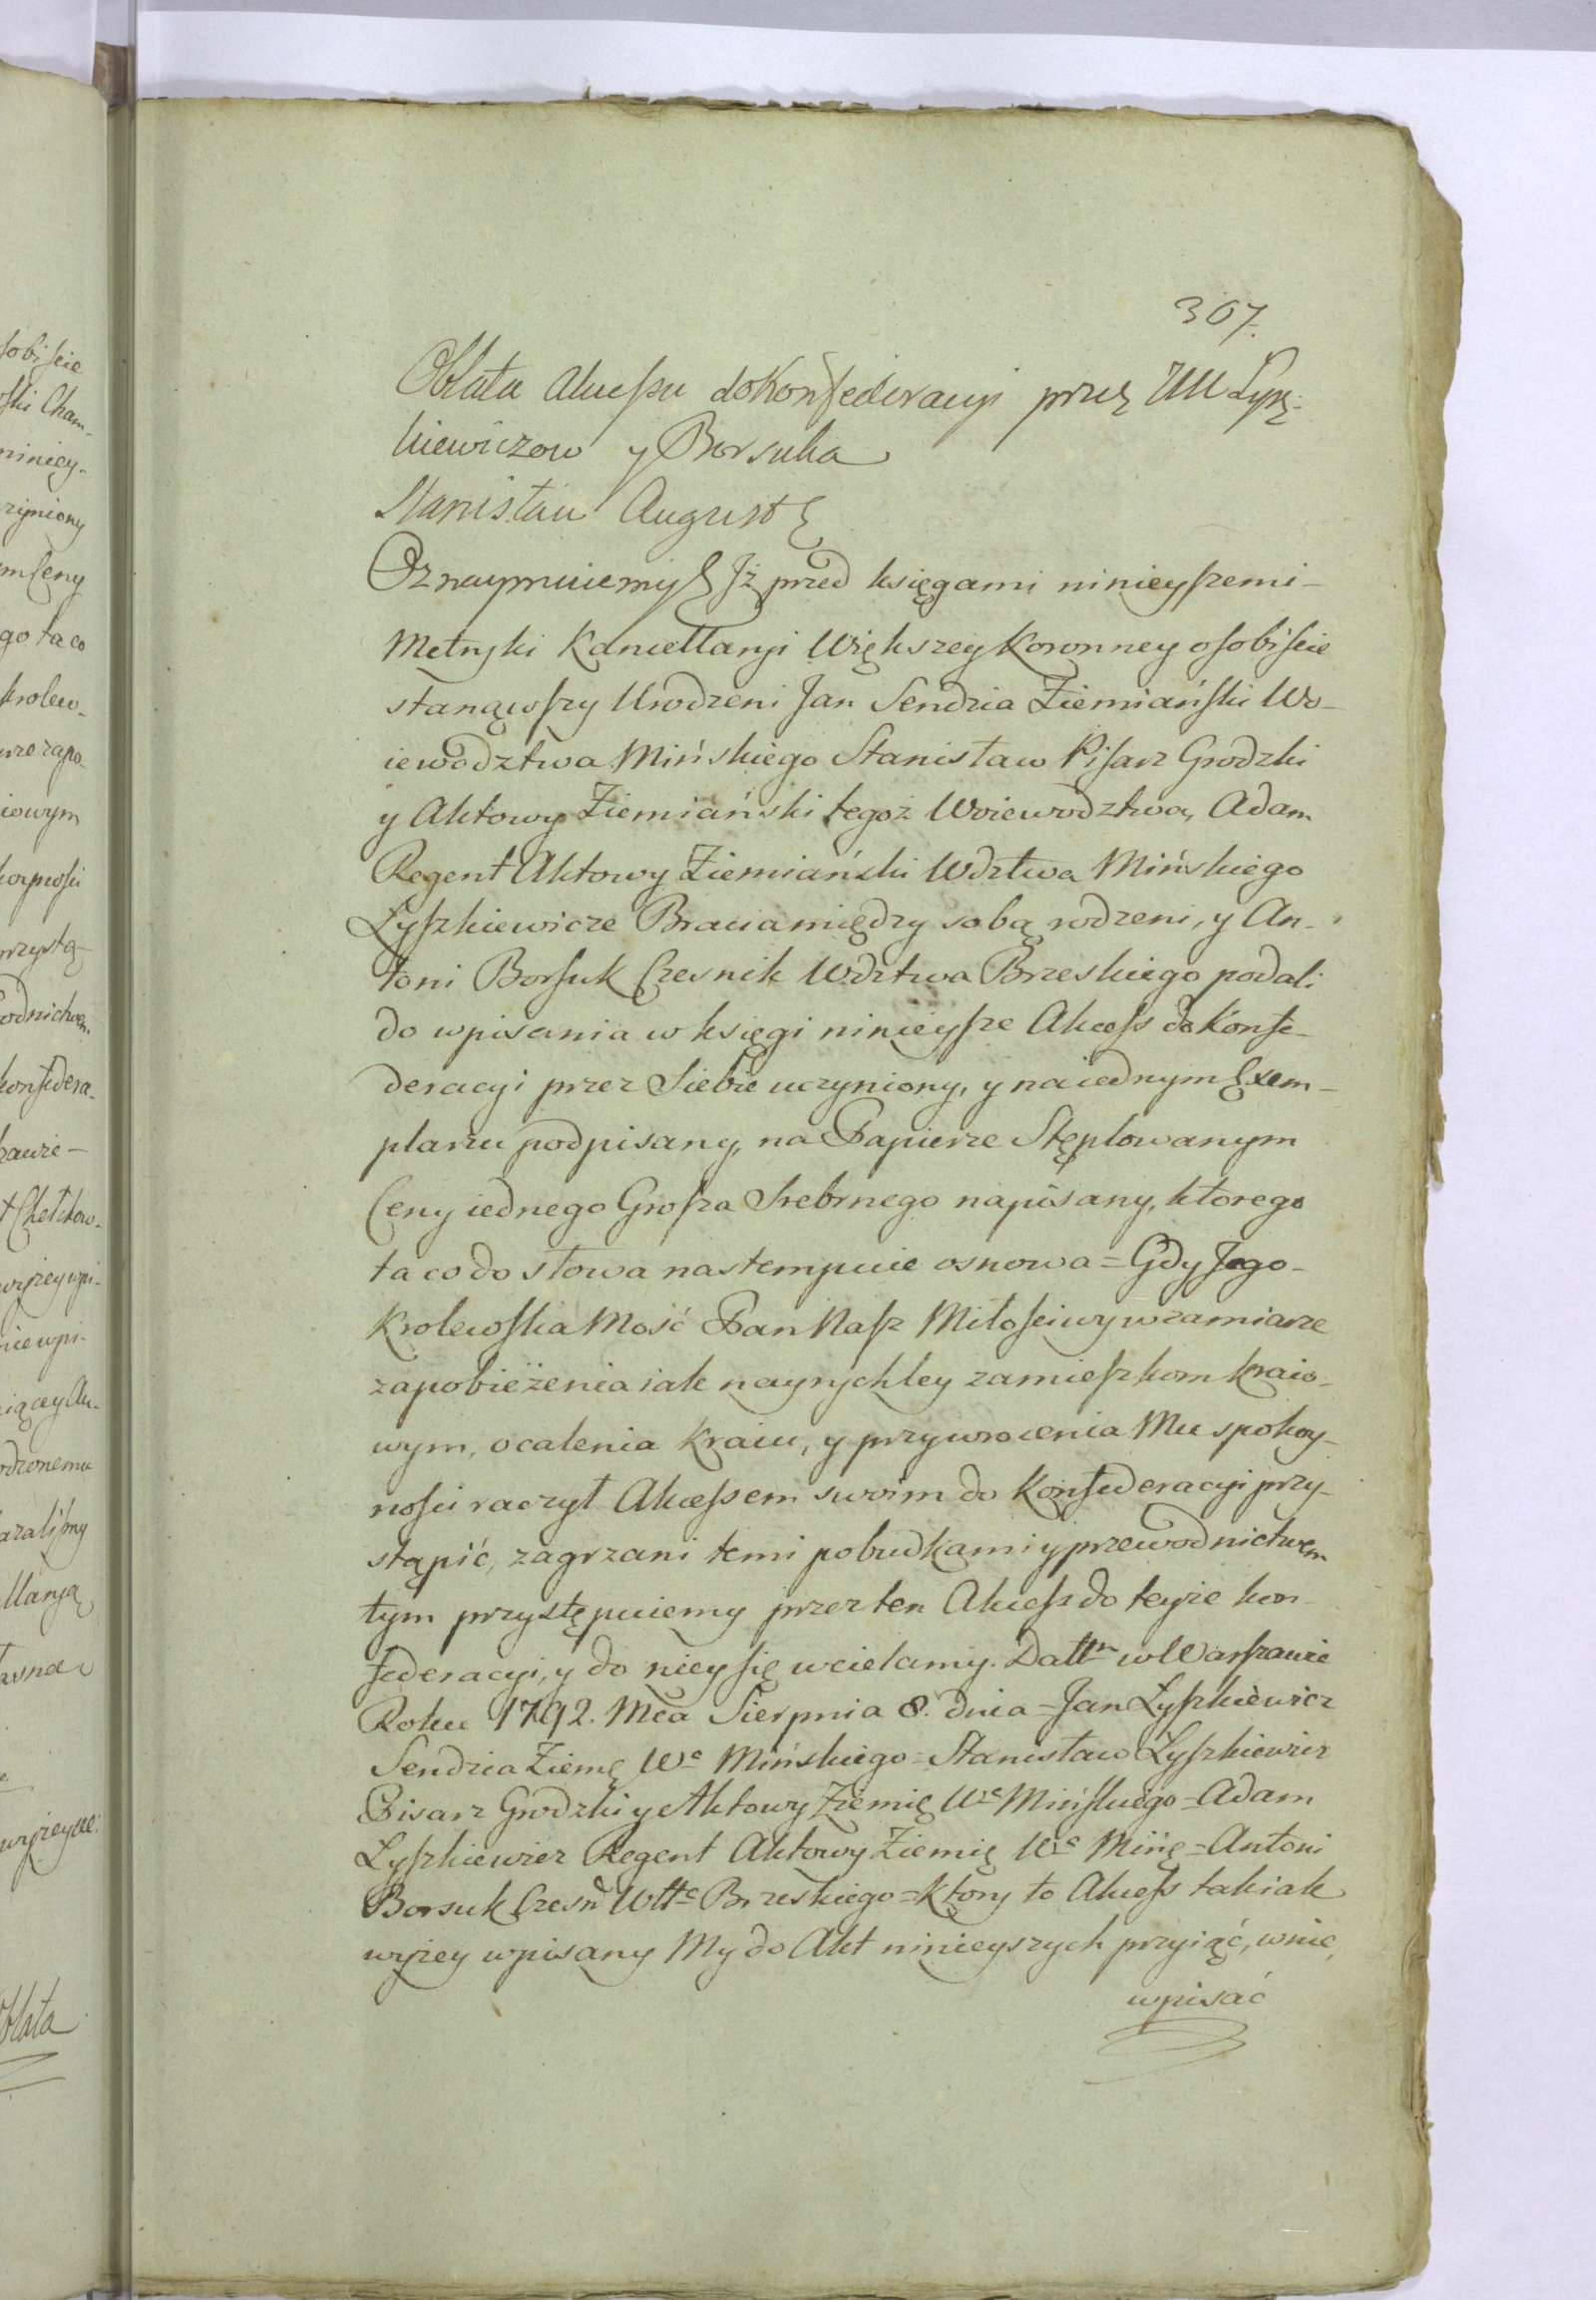 307.
Oblata Akcessu do Konfederacyi przez UU Łysz-
kiewiczow y Borsuka
Stanisław August
Oznaymuiemy Jż przed księgami ninieyszemi-
Metryki Kancellaryi Większey Koronney osobiscie
stanąwszy Urodzeni Jan Sendzia Ziemiański Wo-
iewodztwa Mińskiego Stanisław Pisarz Grodzki
y Aktowy Ziemiański tegoż Woiewodztwa, Adam
Regent Aktowy Ziemiański Wdztwa Mińskiego
Łyszkiewicze Bracia między sobą rodzeni, y An-
toni Borsuk Czesnik Wdztwa Brzeskiego podali
do wpisania w księgi ninieysze Akcess do Konfe-
deracyi przez Siebie uczyniony, y na iednym Exem-
plarzu podpisany, na Papierze Stęplowanym
Ceny iednego Grosza Srebrnego napisany, ktorego
ta co do słowa nastempuie osnowa = Gdy Jego-
Krolewska Mość Pan Nasz Miłosciwy w zamiarze
zapobieżenia iak nayrychley zamieszkom kraio-
wym, ocalenia Kraiu, y przywrocenia Mu spokoy-
nosci raczył Akcessem swoim do Konfederacyi przy-
stąpić, zagrzani temi pobudkami y przewodnictwem
tym przystępuiemy przez ten Akcess do teyże kon-
federacyi, y do niey się wcielamy. Dattm w Warszawie
Roku 1792. Mca Sierpnia 8. dnia = Jan Łyszkiewicz
Sendzia Ziemę Wa Mińskiego = Stanisław Łyszkiewicz
Pisarz Grodzki y Aktowy Ziemię Wa Mińskiego = Adam
Łyszkiewicz Regent Aktowy Ziemię Wa Minę = Antoni
Borsuk Czesn Wtta Brzeskiego = Ktory to Akcess tak iak
wyżey wpisany My do Akt ninieyszych przyiąć, w nie,
wpisać